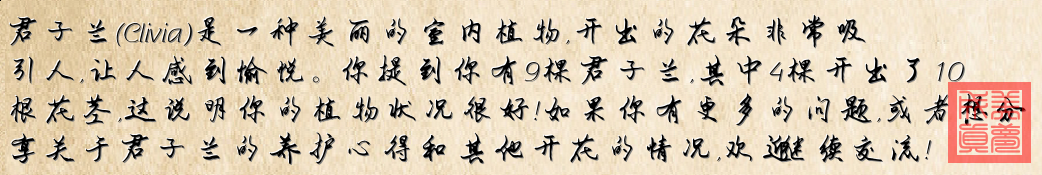 君子兰(Clivia)是一种美丽的室内植物,开出的花朵非常吸
引人,让人感到愉悦。你提到你有9棵君子兰,其中4棵开出了10
根花茎,这说明你的植物状况很好!如果你有更多的问题,或者想分
享关于君子兰的养护心得和其他开花的情况,欢迎继续交流!